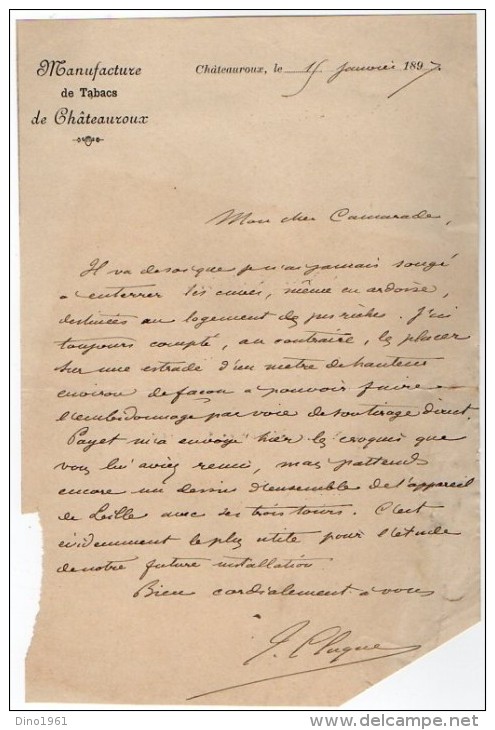 Manufacture
de Tabacs
de Châteauroux
Châteauroux, le 15 Janvier 1897
Mon cher Camarade,
Il va de soi que je n'ai jamais songé
à enterrer les cuves, même en ardoise,
destinées au logement des jus riches. J'ai
toujours compté, au contraire, les placer
sur une estrade d'un mètre de hauteur
environ de façon à pouvoir faire
l'embidonnage par voie de soutirage direct.
Payet m'a envoyé hier les croquis que
vous lui aviez remis, mais j'attends
encore un dessin d'ensemble de l'appareil
de Lille avec ses trois tours. C'est
évidemment le plus utile pour l'étude
de notre future installation.
Bien cordialement à vous
Dino1961
delcampe.net